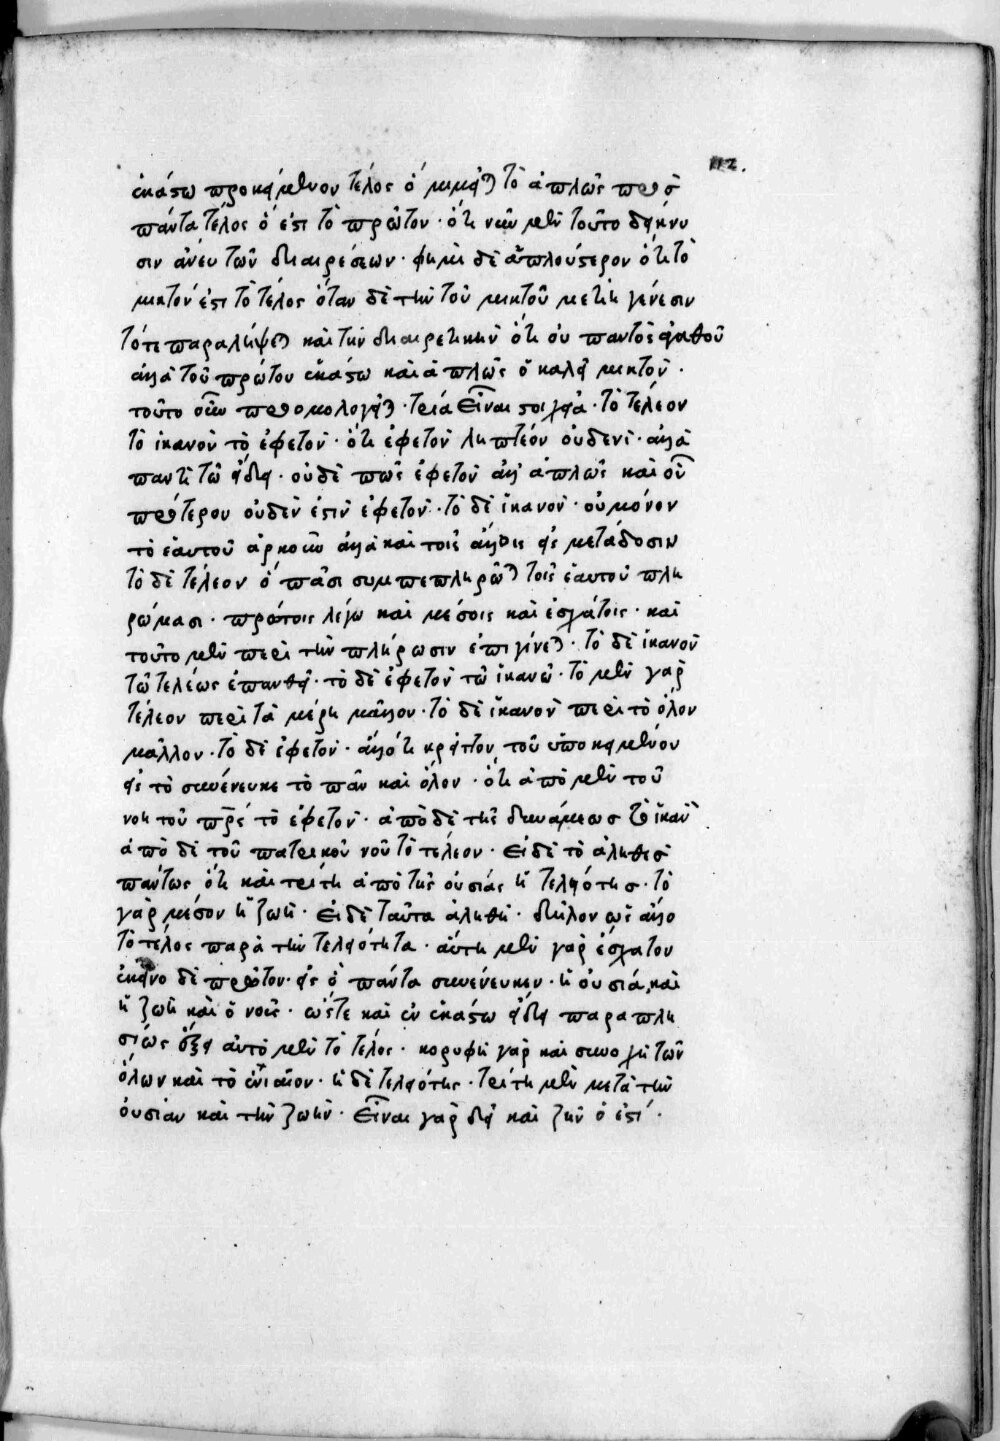 112.
ἑκάστω προκείμενον τέλος ὁ μιμεῖται τὸ ἁπλῶς πρὸσ
πάντα τέλος ὅ ἐστι τὸ πρῶτον · ὅτι νῦν μὲν τοῦτο δείκνυ
σιν ἄνευ τῶν διαιρέσεων · φημὶ δὲ ἁπλούστερον ὅτι τὸ
μικτόν ἐστι τὸ τέλος ὅταν δὲ τὴν τοῦ μικτοῦ μετίη γένεσιν
τότε παραλήψεται καὶ τὴν διαιρετικὴν ὅτι οὐ παντὸς ἀγαθοῦ
ἀλλὰ τοῦ πρώτου ἑκάστω καὶ ἁπλῶς ὃ καλεῖ μικτόν ·
τοῦτο οὖν προομολογεῖται · τρία εἶναι στοιχεῖα · τὸ τέλεον
τὸ ἱκανὸν τὸ ἐφετόν · ὅτι ἐφετὸν ληπτέον οὐδενί · ἀλλὰ
παντὶ τῶ εἴδει · οὐδὲ πῶς ἐφετὸν ἀλλ' ἁπλῶς καὶ οὗ
πρότερον οὐδέν ἐστιν ἐφετόν · τὸ δὲ ἱκανὸν · οὐ μόνον
τὸ ἑαυτοῦ ἀρκοῦν ἀλλὰ καὶ τοῖς ἄλλοις εἰς μετάδοσιν
τὸ δὲ τέλεον ὃ πᾶσι συμπεπλήρωται τοῖς ἑαυτοῦ πλη
ρώμασι · πρώτοις λέγω καὶ μέσοις καὶ ἐσχάτοις · καὶ
τοῦτο μὲν περὶ τὴν πλήρωσιν ἐπιγίνεται · τὸ δὲ ἱκανὸν
τῶ τελέως ἐπανθεῖ · τὸ δὲ ἐφετὸν τῶ ἱκανῶ · τὸ μὲν γὰρ
τέλεον περὶ τὰ μέρη μᾶλλον · τὸ δὲ ἱκανὸν περὶ τὸ ὅλον
μᾶλλον · τὸ δὲ ἐφετὸν · ἄλλό τι κρεῖττον τοῦ ὑποκειμένου
εἰς τὸ συνένευκε τὸ πᾶν καὶ ὅλον · ὅτι ἀπὸ μὲν τοῦ
νοητοῦ πρς τὸ ἐφετόν · ἀπὸ δὲ τῆς δυνάμεωσ τὸ ἱκανὸν
ἀπὸ δὲ τοῦ πατρικοῦ νοῦ τὸ τέλεον · εἰ δὲ τὸ ἀληθὲσ
πάντως ὅτι καὶ τρίτη ἀπὸ τῆς οὐσίας ἡ τελειότησ · τὸ
γὰρ μέσον ἡ ζωή · εἰ δὲ ταῦτα ἀληθῆ · δῆλον ὡς ἄλλο
τὸ τέλος παρὰ τὴν τελειότητα · αὕτη μὲν γὰρ ἔσχατον
ἐκεῖνο δὲ πρῶτον · εἰς ὃ πάντα συνένευκεν · ἡ οὐσία, καὶ
ἡ ζωὴ καὶ ὁ νοῦς · ὥστε καὶ ἐν ἑκάστω εἴδει παραπλη
σίως ἕξει αὐτὸ μὲν τὸ τέλος · κορυφὴ γὰρ καὶ συνοχὴ τῶν
ὅλων καὶ τὸ ἑνιαῖον · ἡ δὲ τελειότης · τρίτη μὲν μετὰ τὴν
οὐσίαν καὶ τὴν ζωήν · εἶναι γὰρ δεῖ καὶ ζῆν ὅ ἐστί ·